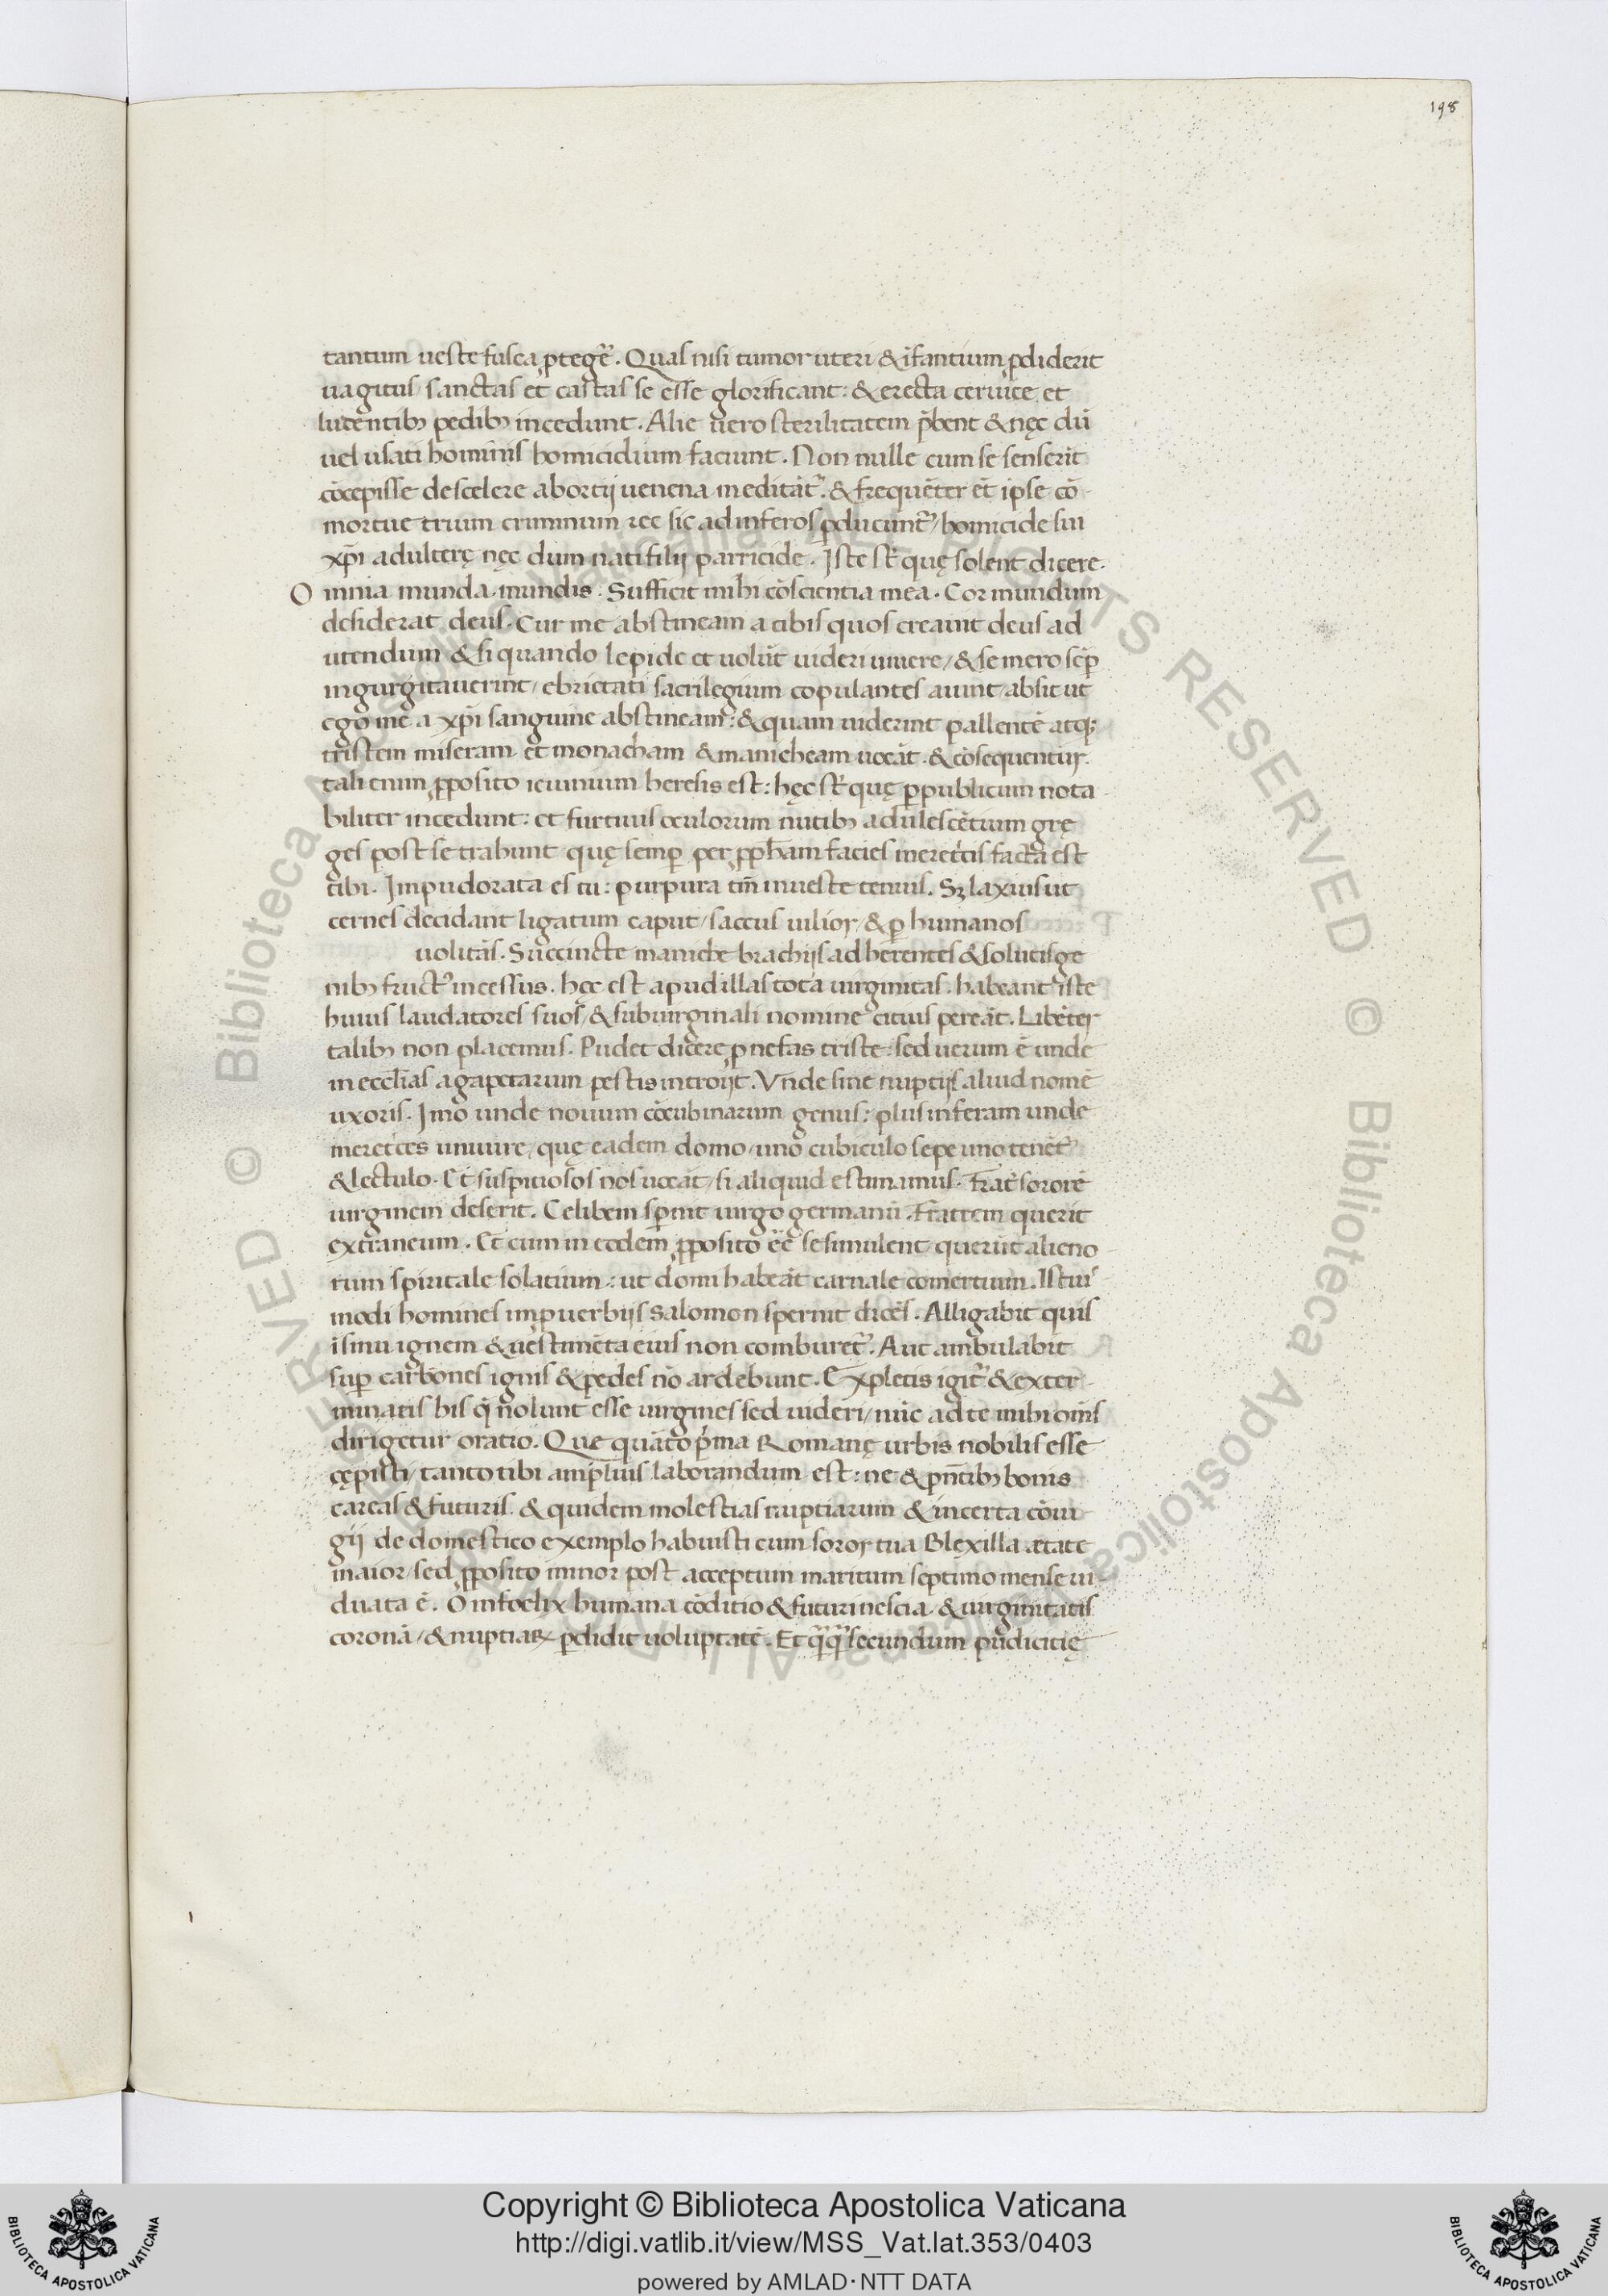 198
tantum ueste fusca ꝓtegẽ. Quas nisi tumor uteri & ĩfantium ꝓdiderit
uagitus / sanctas et castas se esse glorificant: & erecta ceruice et
ludentib; pedib; incedunt. Alie uero sterilitatem p̃bent & nęc dũ
uel usati hominis homicidium faciunt. Non nulle cum se senserĩt
cõcepisse de scelere abortij uenena meditãt᷑. & frequẽter ẽt ipse cõ
mortue trium criminum ree sic ad inferos ꝑducunt᷑ / homicide sui
xp̃i adulterę nęc dum nati filij parricide. Iste st̃ quę solent dicere.
Omnia munda mundis. Sufficit mihi cõscientia mea. Cor mundum
desiderat deus. Cur me abstineam a cibis quos creauit deus ad
utendum & si quando lepide et uolũt uideri uiuere / & se mero semꝑ
ingurgitauerint / ebrietati sacrilegium copulantes aiunt / absit ut
ego me a xp̃i sanguine abstineam: & quam uiderint pallentẽ atq;
tristem miseram et monacham & manicheam uocãt. & cõsequentur.
tali enim ꝓposito ieiunium heresis est: hęc st̃ quę ꝑ publicum nota
biliter incedunt: et furtiuis oculorum nutib; adulescẽtium gre
ges post se trahunt quę semꝑ per ꝓph̃am facies meretricis facta est
tibi. Impudorata es tu: purpura tm̃ in ueste tenuis. Sꝫ laxius ut
cernes decidant ligatum caput / saccus uilior / & ꝑ humanos
uolitãs. Succincte maniche brachijs adherentes & solutis ge
nib; fract᷒ incessus. hęc est apud illas tota uirginitas. habeant iste
huius laudatores suos / & sub uirginali nomine citius pereãt. Libẽter
talib; non placemus. Pudet dicere ꝓ nefas triste: sed uerum ẽ unde
in eccl̃ias agapetarum pestis introijt. Vnde sine nuptijs aliud nomẽ
uxoris. Imo unde nouum cõcubinarum genus: plus inferam unde
meretrices uniuire / quę eadem domo / uno cubiculo sepe uno tenẽt᷑
& lectulo. Et suspiciosos nos uocãt / si aliquid estimamus. Frat̃ sororẽ
uirginem deserit. Celibem sꝑnit uirgo germanũ. Fratrem querit
extraneum. Et cum in eodem ꝓposito eẽ se simulent querũt alieno
rum spiritale solatium: ut domi habeãt carnale comertium. Istius
modi homines in ꝓuerbijs Salomon spernit dicẽs. Alligabit quis
ĩ sinu ignem & uestimẽta eius non comburet᷑. Aut ambulabit
suꝑ carbones ignis & pedes nõ ardebunt. Expletis igit᷑ & exter
minatis his q̃ nolunt esse uirgines sed uideri / nũc ad te mihi om̃s
dirigetur oratio. Que quãto p̃ma Romanę urbis nobilis esse
cępisti / tanto tibi amplius laborandum est: ne & pñtib; bonis
careas & futuris. & quidem molestias nuptiarum & incerta cõiu
gij de domestico exemplo habuisti cum soror tua Blęxilla ætate
maior / sed ꝓposito minor post acceptum maritum septimo mense ui
duata ẽ. O infoelix humana cõditio & futuri nescia & uirginitatis
coronã / & nuptiaꝝ ꝑdidit uoluptatẽ. Et q̃q̃ secundum pudicitię